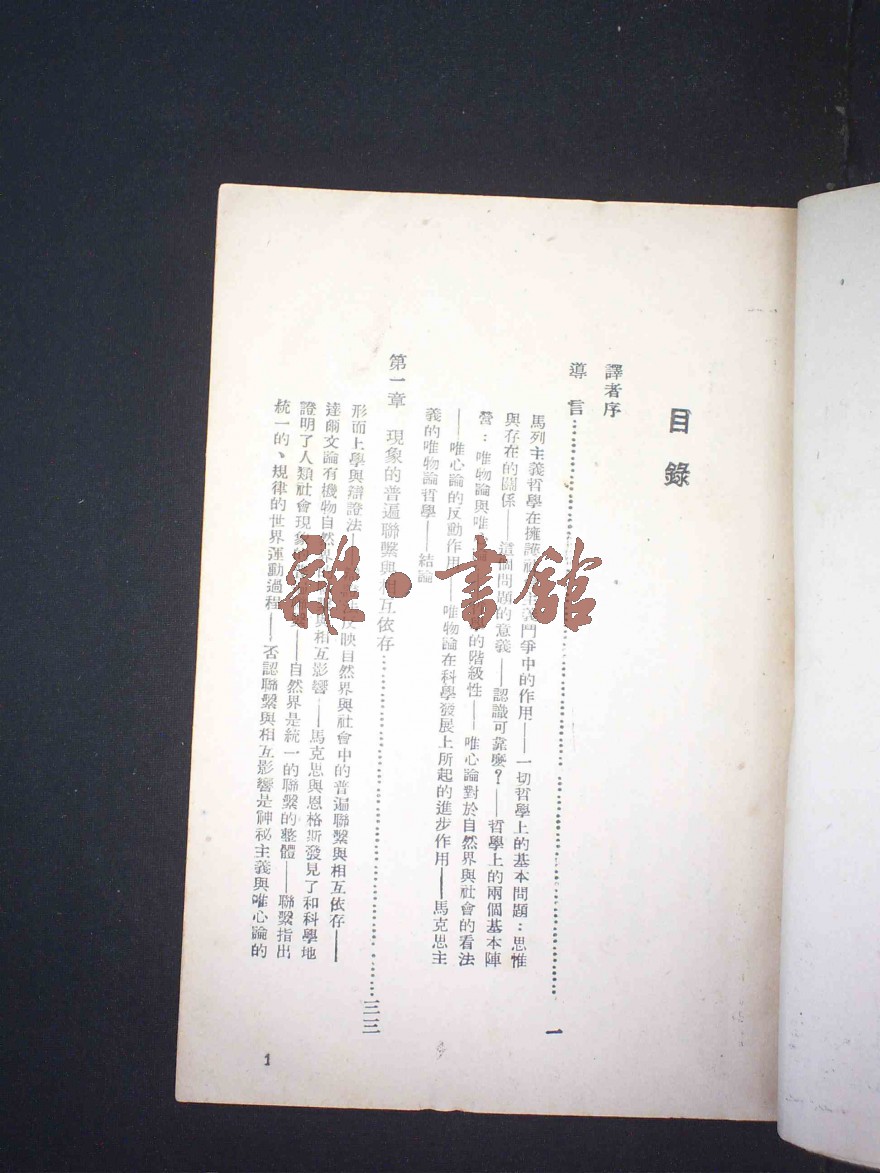 目錄
譯者序
導言……一
馬列主義哲學在擁護社會主義鬥爭中的作用——一切哲學上的基本問題：思惟
與存在的關係——這個問題的意義——認識可靠麼？——哲學上的兩個基本陣
營：唯物論與唯心論的階級性——唯心論對於自然界與社會的看法
——唯心論的反動作用——唯物論在科學發展上所起的進步作用——馬克思主
義的唯物論哲學——結論
第一章 現象的普遍聯繫與相互依存……三三
形而上學與辯證法——反映自然界與社會中的普遍聯繫與相互依存——
達爾文論有機物自然界與相互影響——馬克思與恩格斯發見了和科學地
證明了人類社會現象——自然界是統一的聯繫的整體——聯繫指出
統一的、規律的世界運動過程——否認聯繫與相互影響是神祕主義與唯心論的
1
雜·書館